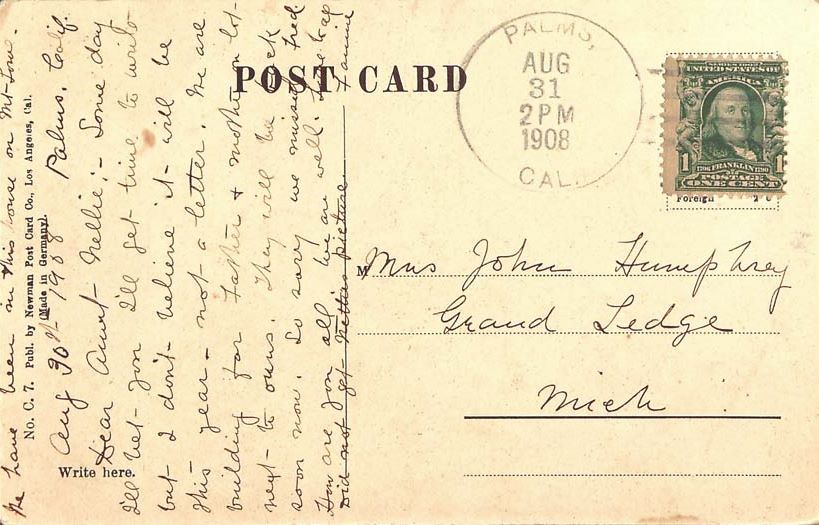 We have been in this house on Mt. Tour.
No. C. 7. Publ. by Newman Post Card Co., Los Angeles, Cal.
(Made in Germany).
Aug 30th 1908 Palms, Calif.
Dear Aunt Nellie;- Some day
I'll bet you I'll get time to write
but I don't believe it will be
this year - not a letter. We are
building for Father & mother on lot
next to ours. They will be back
soon now. So sorry we missed Fred
How are you all. We are well.
Did not get Netties picture Fannie
Write here.
POST CARD
PALMS,
AUG
31
2 PM
1908
CAL.
SERIES 1902
UNITED STATES OF
AMERICA
1 1706 FRANKLIN 1790 1
POSTAGE
ONE CENT
Foreign
M Mrs John Humphrey
Grand Ledge
Mich